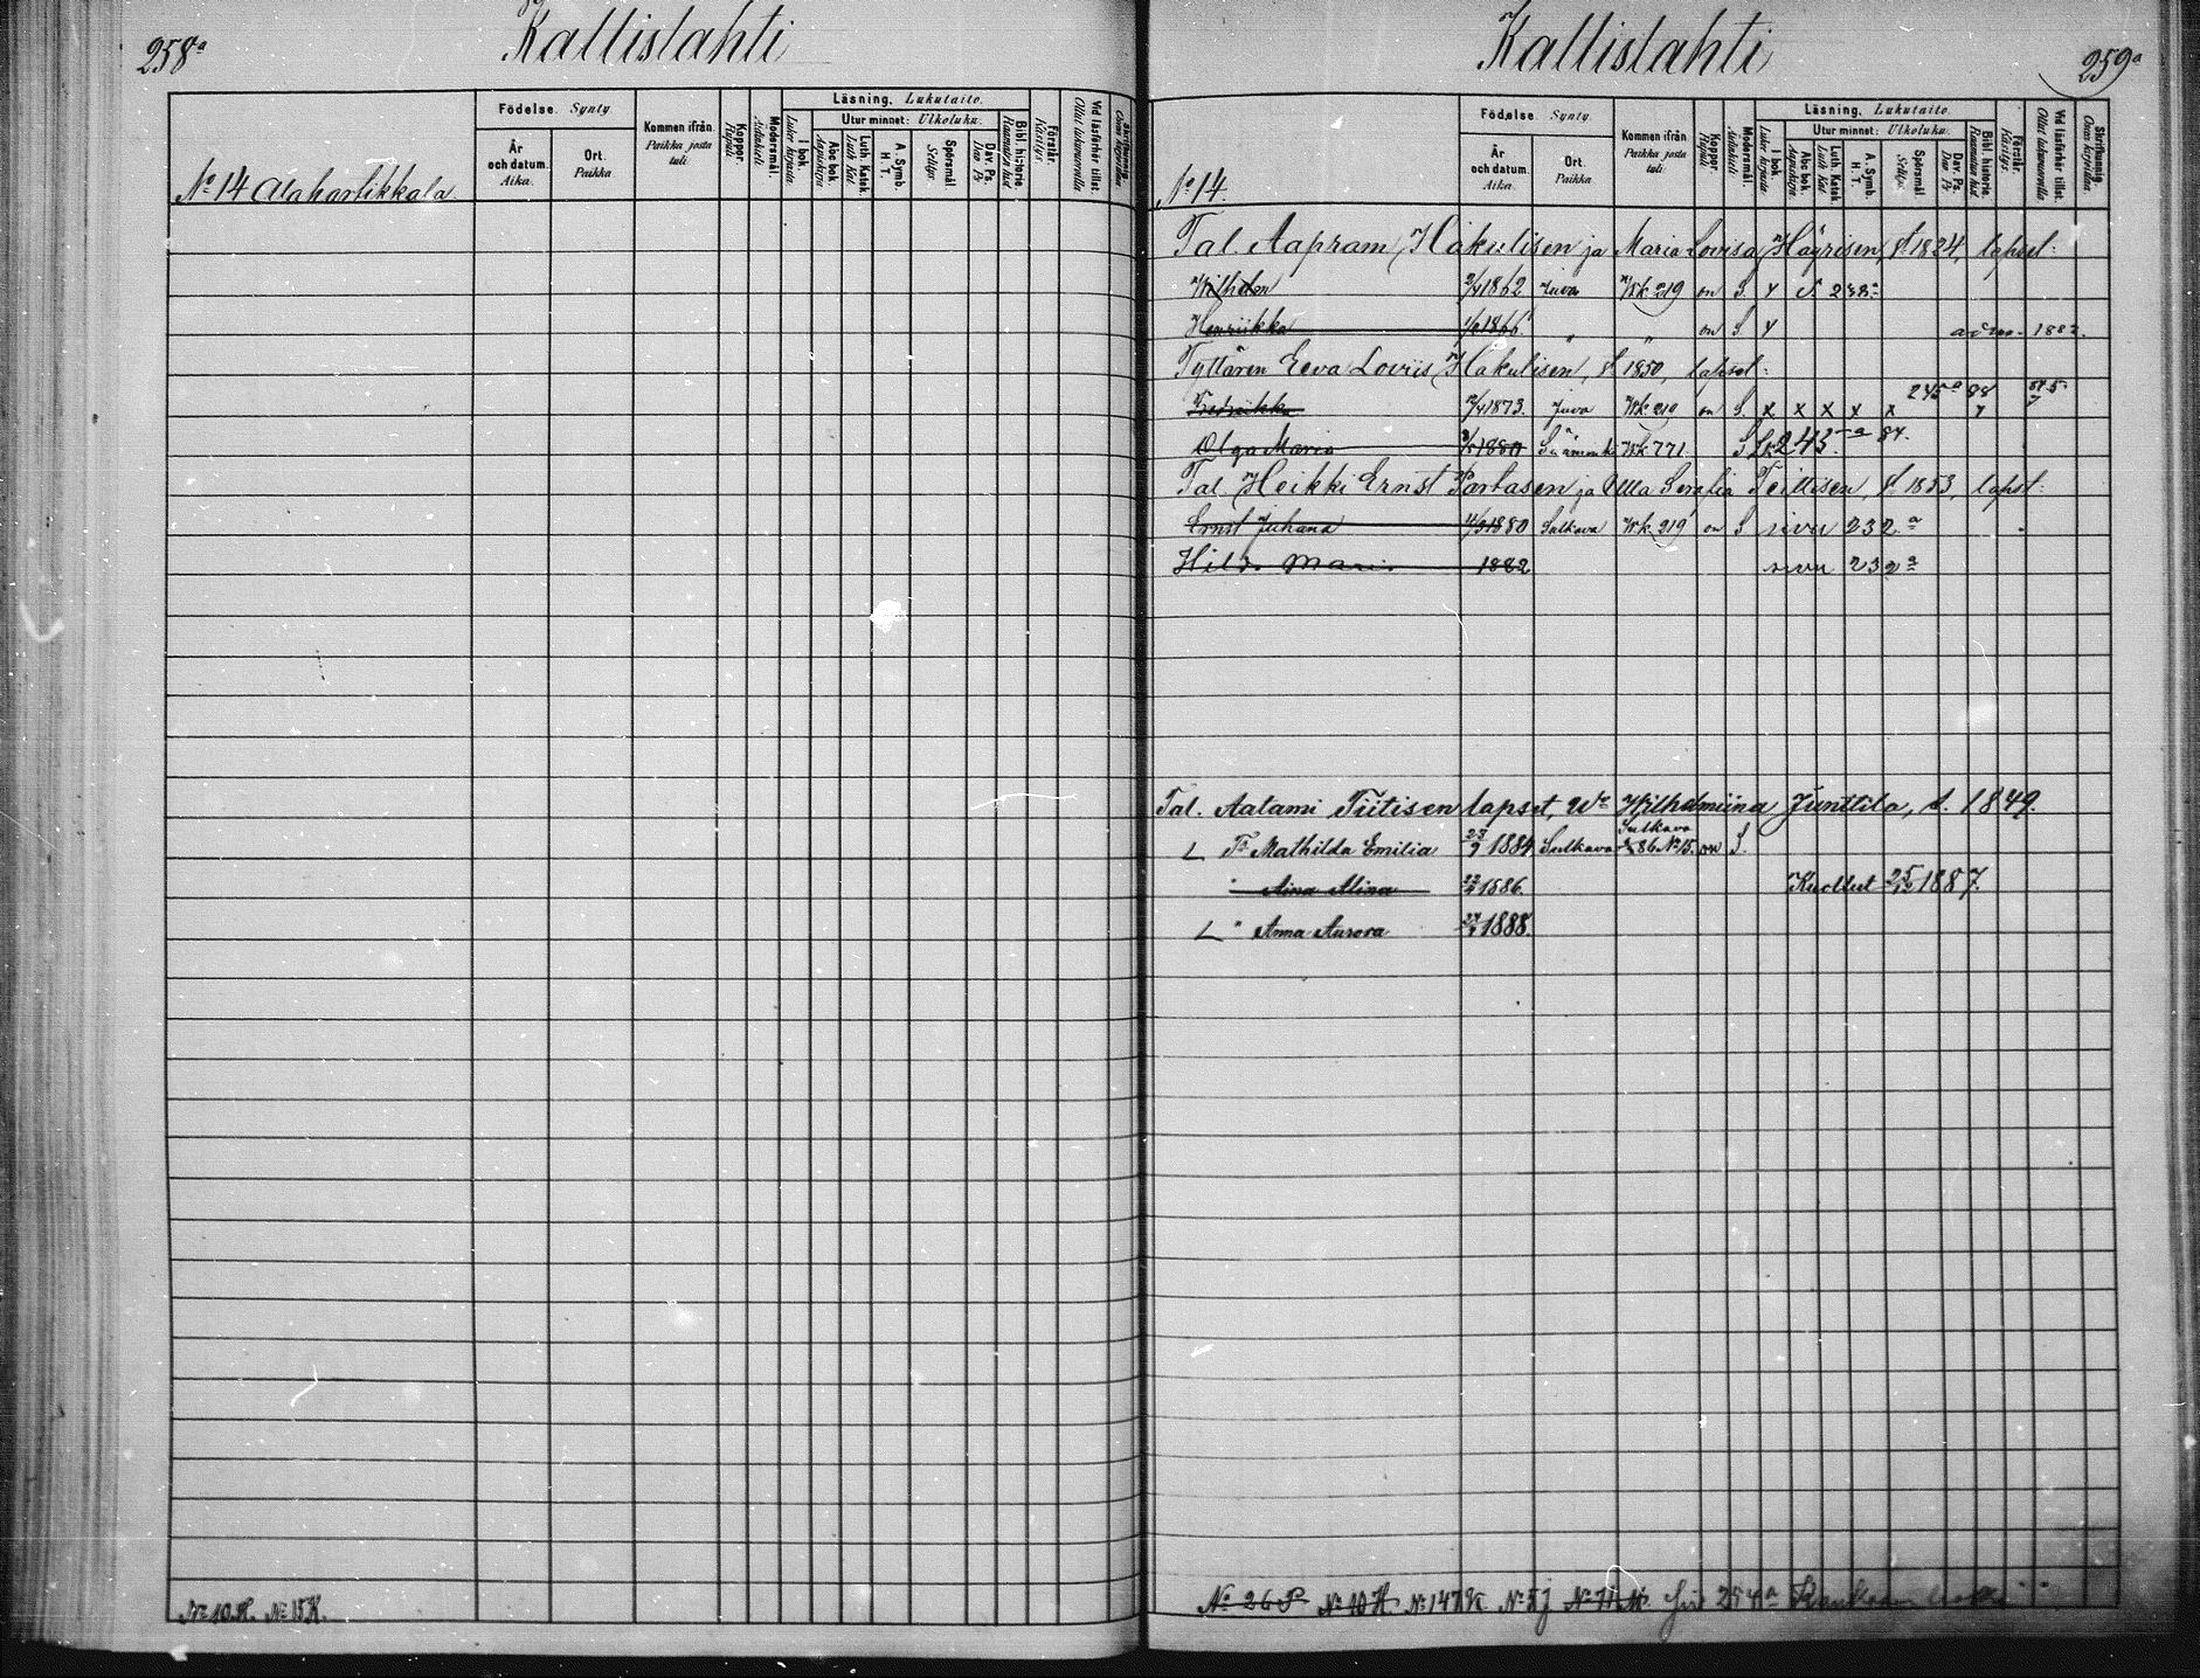 258a
Kallislahti
Födelse. Synty
Kommen ifrån.
Paikka josta tuli.
Koppor.
Rupuli
Modersmål.
Äidinkieli
Läsning. Lukutaito.
Utur minnet: Ulkoluku.
I bok.
Lukee kirjasta
Abc bok.
Aapiskirja
Luth. Katek.
Luth. Kat.
A. Symb.
H. T.
Spörsmål
Selitys.
Dav. Ps.
Dav. Ps
Bibl. historie.
Raamatun hist.
Förstår.
Käsitys.
Vid läsförhör tillst.
Ollut lukuvuorolla
Skrifkunnig.
Osaa kirjoittaa
År
och datum.
Aika.
Ort.
Paikka
No 14 Alahartikkala.
No 10.K. No 15K.
Kallislahti
259a
Födelse. Synty.
Kommen ifrån.
Paikka josta tuli.
Koppor.
Rupuli
Modersmål.
Äidinkieli
Läsning. Lukutaito.
Utur minnet: Ulkoluku.
I bok.
Lukee kirjasta
Abc bok.
Aapiskirja
Luth. Katek
Luth. Kat
A. Symb.
H. T.
Spörsmål
Selitys.
Dav. Ps.
Dav. Ps
Bibl. historie.
Raamatun hist
Förstår.
Käsitys.
Vid läsförhör tillst.
Ollut lukuvuorolla
Skrifkunnig.
Osaa kirjoittaa.
År
och datum.
Aika.
Ort.
Paikka
No 14.
Tal. Aapram Hakulisen ja Maria Lovisa Häyrisen, s. 1824, lapset:
Wilhelm 1862 Juva Wk 219 on S. S. 238a
Henriikka 1866 " " on S 1882.
Tyttären Eeva Loviis Hakulisen, s. 1850, lapset:
Fredriikka 1873. Juva Wk 219 on S. x x x x x 245a 88
Olga Maria 1880 Säämink Wk 771. S 243a 84.
Tal. Heikki Ernst Partasen ja Ulla Serafia Teittisen, s. 1853, lapset:
Ernst Juhana 1880 Sulkava Wk 219 on S sivu 232a
Hilda Maria 1882 sivu 232a
Tal. Aatami Tiitisen lapset, Wo Wilhelmiina Junttila, s. 1849.
L Tr Mathilda Emilia 23/9 1884 Sulkava Sulkava 86 No 15. on S.
" Aina Alina 1886. Kuollut 1887.
L " Anna Aurora 1888.
No 26 P No 10 H. No 147 No 5 J 254a